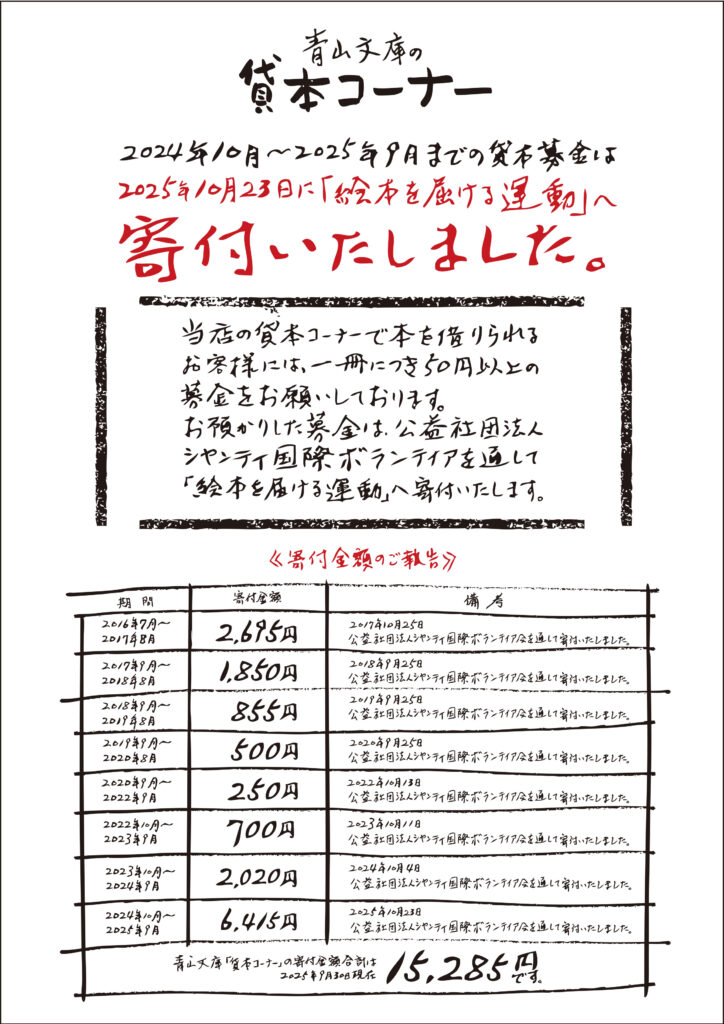 青山文庫の
貸本コーナー
2024年10月〜2025年9月までの貸本募金は
2025年10月23日に「絵本を届ける運動」へ
寄付いたしました。
当店の貸本コーナーで本を借りられる
お客様には、一冊につき50円以上の
募金をお願いしております。
お預かりした募金は、公益社団法人
シャンティ国際ボランティアを通して
「絵本を届ける運動」へ寄付いたします。
《寄付金額のご報告》
期間 寄付金額 備考
2016年7月〜
2017年8月
2,695円
2017年10月25日
公益社団法人シャンティ国際ボランティア会を通して寄付いたしました。
2017年9月〜
2018年8月
1,850円
2018年9月25日
公益社団法人シャンティ国際ボランティア会を通して寄付いたしました。
2018年9月〜
2019年8月
855円
2019年9月25日
公益社団法人シャンティ国際ボランティア会を通して寄付いたしました。
2019年9月〜
2020年8月
500円
2020年9月25日
公益社団法人シャンティ国際ボランティア会を通して寄付いたしました。
2020年9月〜
2022年9月
250円
2022年10月13日
公益社団法人シャンティ国際ボランティア会を通して寄付いたしました。
2022年10月〜
2023年9月
700円
2023年10月11日
公益社団法人シャンティ国際ボランティア会を通して寄付いたしました。
2023年10月〜
2024年9月
2,020円
2024年10月4日
公益社団法人シャンティ国際ボランティア会を通して寄付いたしました。
2024年10月〜
2025年9月
6,415円
2025年10月23日
公益社団法人シャンティ国際ボランティア会を通して寄付いたしました。
青山文庫「貸本コーナー」の寄付金額合計は
2025年9月30日現在
15,285円
です。